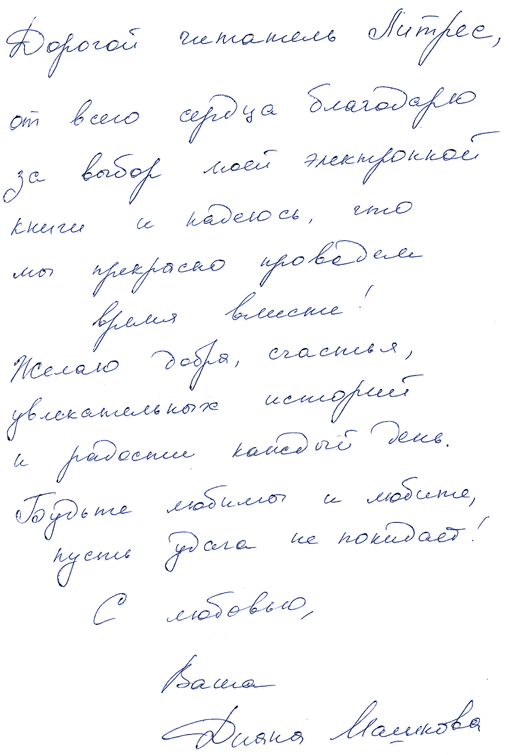 Дорогой читатель Литрес,
от всего сердца благодарю
за выбор моей электронной
книги и надеюсь, что
мы прекрасно проведем
время вместе!
Желаю добра, счастья,
увлекательных историй
и радости каждый день.
Будьте любимы и любите,
пусть удача не покидает!
С любовью,
Ваша
Диана Машкова